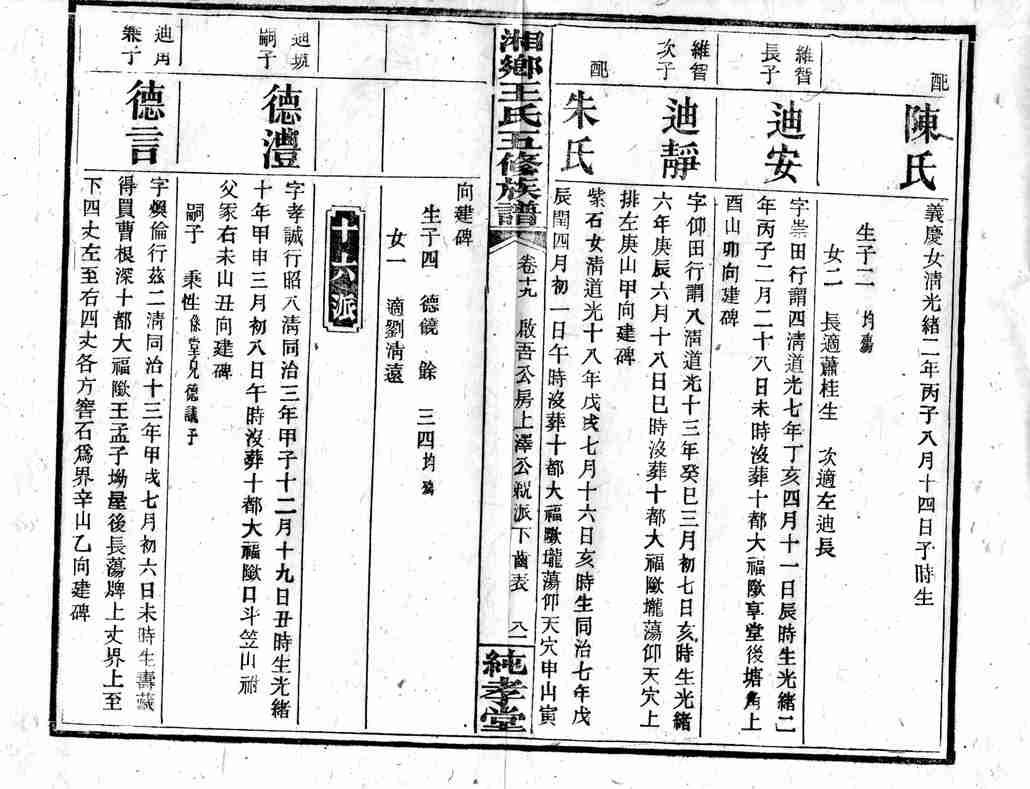 配
陳氏
義慶女淸光緒二年丙子八月十四日子時生
生子二 均殤
女二 長適蕭桂生 次適左迪長
維智
長子
迪安
字崇田行謂四淸道光七年丁亥四月十一日辰時生光緒二
年丙子二月二十八日未時沒葬十都大福歐享堂後塘角上
酉山卯向建碑
維智
次子
迪靜
字仰田行謂八淸道光十三年癸巳三月初七日亥時生光緒
六年庚辰六月十八日巳時沒葬十都大福歐壠蕩仰天穴上
排左庚山甲向建碑
配
朱氏
紫石女淸道光十八年戊戌七月十六日亥時生同治七年戊
辰閏四月初一日午時沒葬十都大福歐壠蕩仰天穴申山寅
湘鄉王氏五修族譜
卷十九 啟吾公房上澤公派下齒表 八一
純孝堂
向建碑
生子四 德饒 餘 三四均殤
女一 適劉淸遠
十六派
嗣子
德澧
字孝誠行昭八淸同治三年甲子十二月十九日丑時生光緒
十年甲申三月初八日午時沒葬十都大福歐口斗笠山祔
父冢右未山丑向建碑
嗣子 乘性係堂兄德議子
德言
字煥倫行茲二淸同治十三年甲戌七月初六日未時生壽藏
得買曹根深十都大福歐王孟子坳屋後長蕩牌上丈界上至
下四丈左至右四丈各方窖石爲界辛山乙向建碑